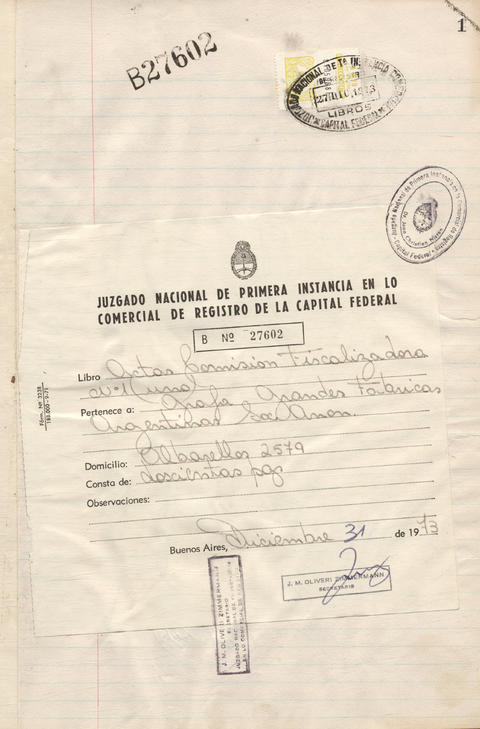 1
B27602
JUZGADO NACIONAL DE 1ª INSTANCIA
27 DIC. 1973
LIBROS
CAPITAL FEDERAL
Juzgado Nacional de Primera Instancia en lo Comercial de Registro
Capital Federal
JUZGADO NACIONAL DE PRIMERA INSTANCIA EN LO
COMERCIAL DE REGISTRO DE LA CAPITAL FEDERAL
B Nº 27602
Libro Actas Comisión Fiscalizadora
Nº1 (uno)
Pertenece a: Grafa Grandes Fabricas
Argentinas Soc Anon.
Domicilio: Albarellos 2579
Consta de: doscientas pgs
Observaciones:
Buenos Aires, Diciembre 31 de 1973
J. M. OLIVERI ZIMMERMANN
SECRETARIO
J. M. OLIVERI ZIMMERMANN
SECRETARIO
JUZGADO NACIONAL DE
EN LO COMERCIAL DE
Fórm. Nº 3238